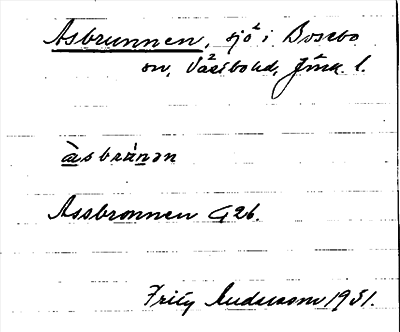 Asbrunnen, sjö i Bosebo
sn, Västbo hd, Jönk. l.
àsbrànən
Assbronnen G 26.
Fritz Andersson 1931.